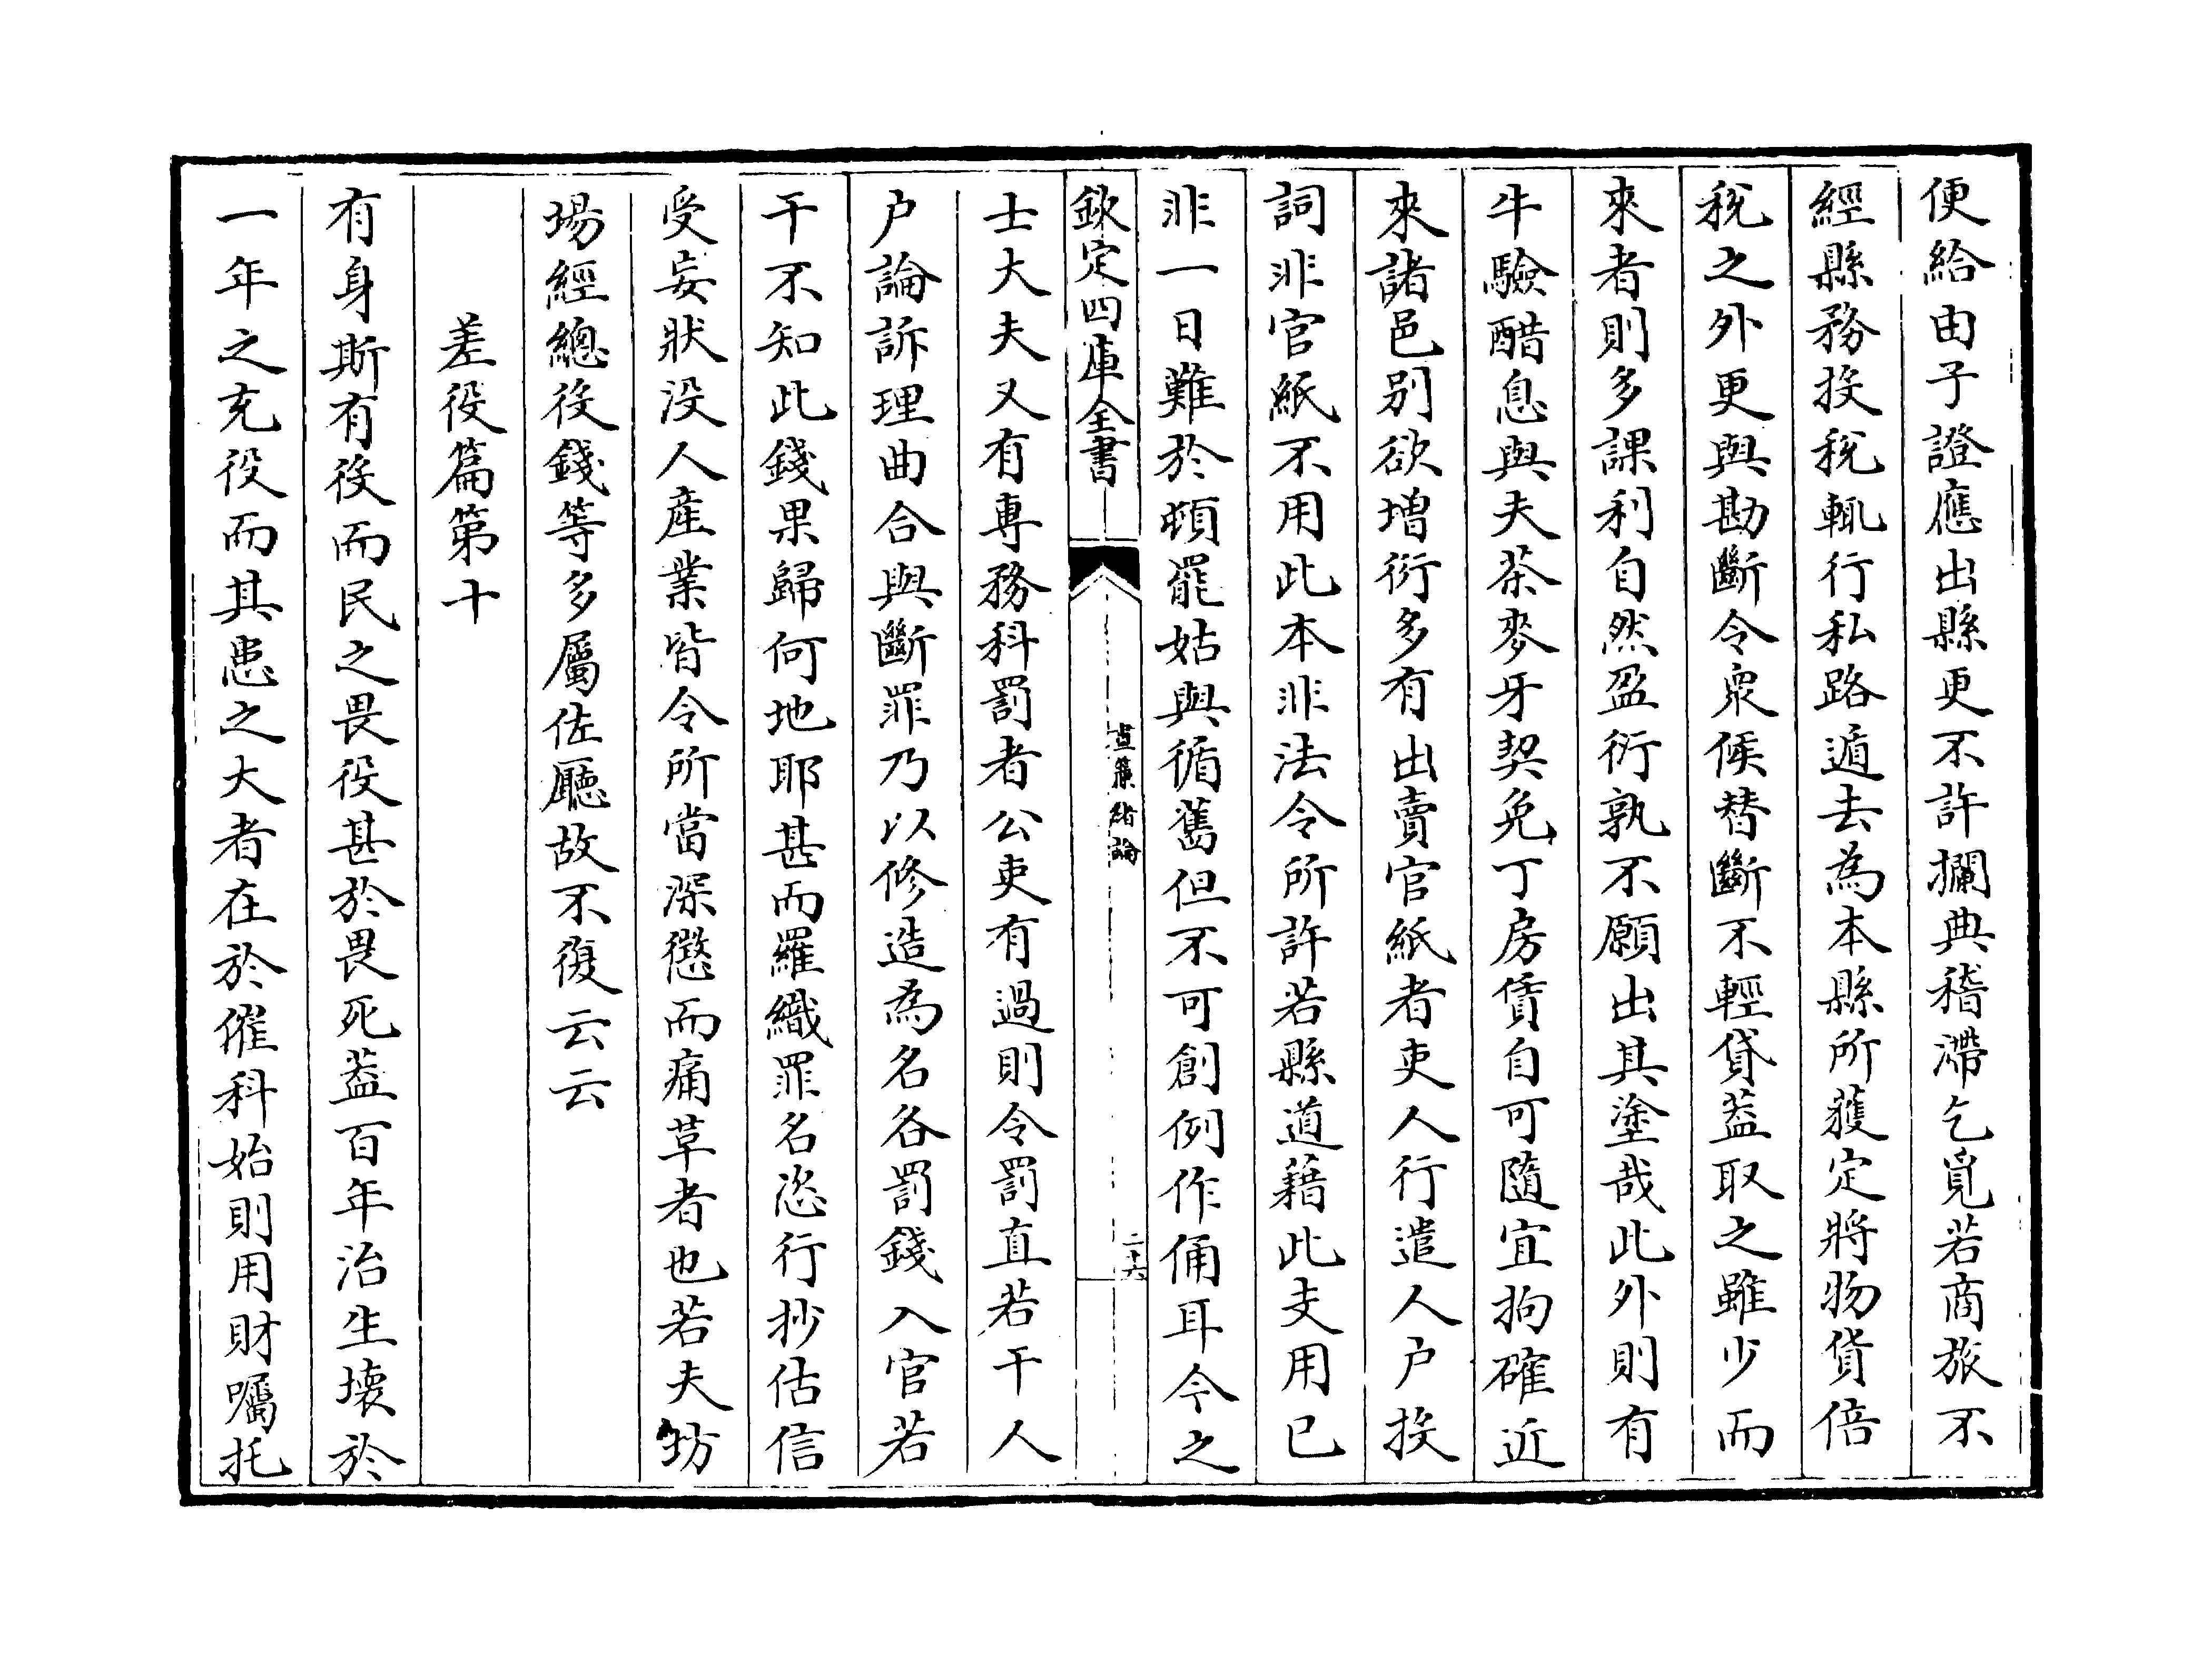 便給由子證應出縣更不許攔典稽滯乞覓若商旅不
經縣務投稅輒行私路遁去為本縣所獲定將物貨倍
稅之外更與勘斷令衆候替斷不輕貸葢取之雖少而
來者則多課利自然盈衍孰不願出其塗哉此外則有
牛驗醋息與夫茶麥牙契免丁房賃自可隨宜拘確近
來諸邑別欲增衍多有出賣官紙者吏人行遣人户投
詞非官紙不用此本非法令所許若縣道藉此支用已
非一日難於頓罷姑與循舊但不可創例作俑耳今之
欽定四庫全書
晝簾緒論
二十六
士大夫又有專務科罰者公吏有過則令罰直若干人
户論訴理曲合與斷罪乃以修造為名各罰錢入官若
干不知此錢果歸何地耶甚而羅織罪名恣行抄估信
受妄狀没人產業皆令所當深懲而痛革者也若夫坊
場經總役錢等多屬佐廳故不復云云
差役篇第十
有身斯有役而民之畏役甚於畏死葢百年治生壞於
一年之充役而其患之大者在於催科始則用財囑托